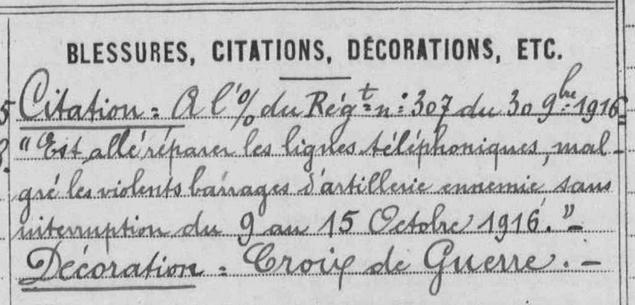 BLESSURES, CITATIONS, DÉCORATIONS, ETC.
Citation = A l'% du Régt n: 307 du 30 9bre 1916
"Est allé réparer les lignes téléphoniques, mal-
gré les violents barrages d'artillerie ennemie sans
interruption du 9 au 15 Octobre 1916."-
Décoration = Croix de Guerre.-